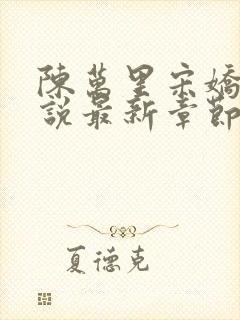 陳萬里宋嬌
說最新章節
夏德克